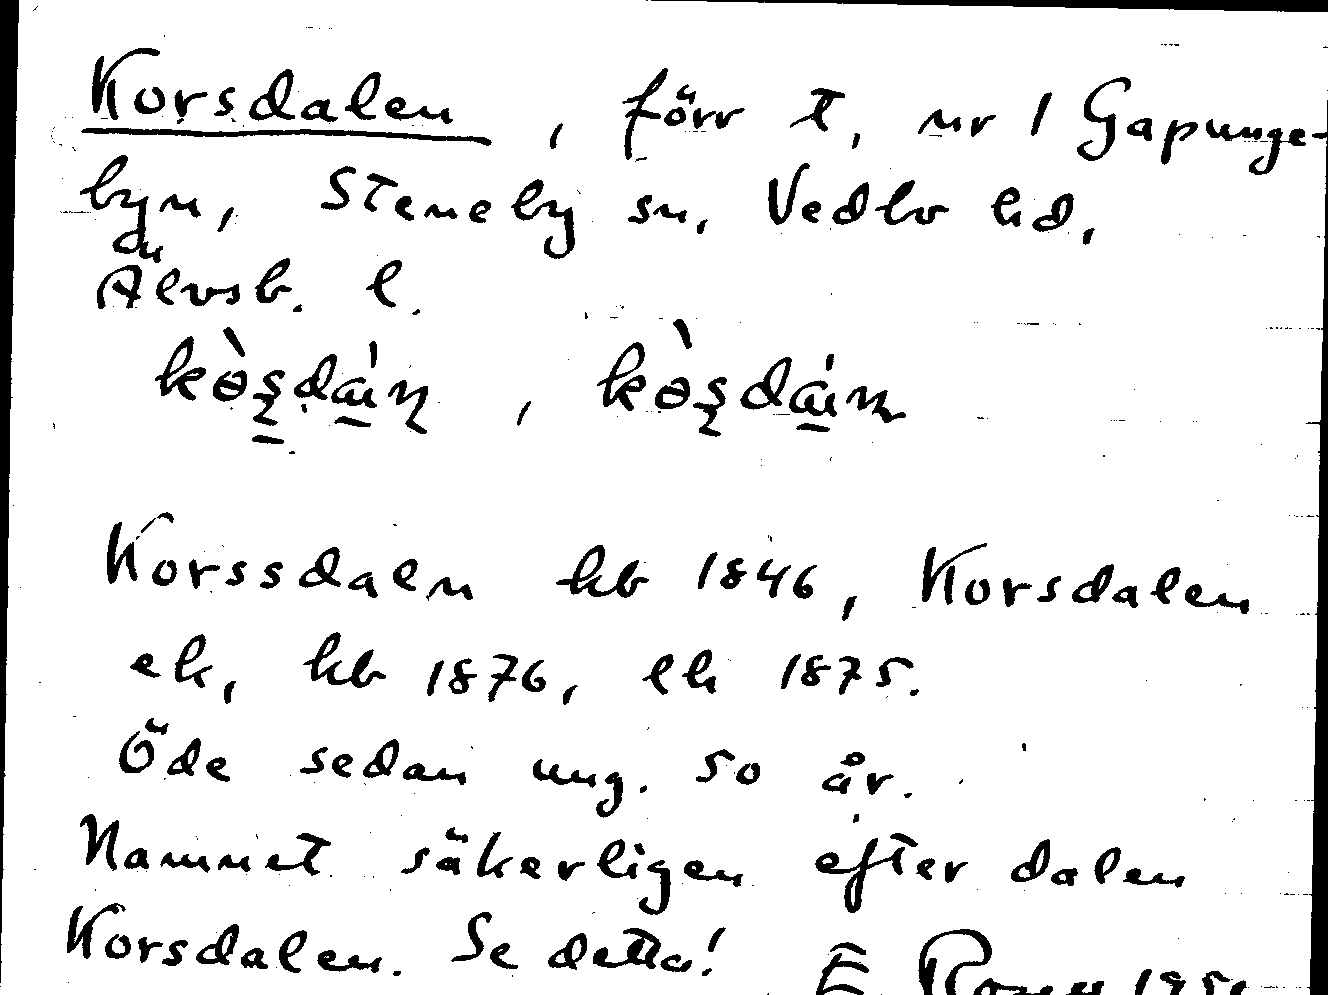 Korsdalen, förr t, nr 1 Gapunge-
byn, Steneby sn, Vedbo hd,
Älvsb. l.
kò̱ṣdáṇ, kò̱ṣdáṇ
Korssdaln kb 1846, Korsdalen
ek, kb 1876, lh 1875.
Öde sedan ung. 50 år.
Namnet säkerligen efter dalen
Korsdalen. Se detta! E